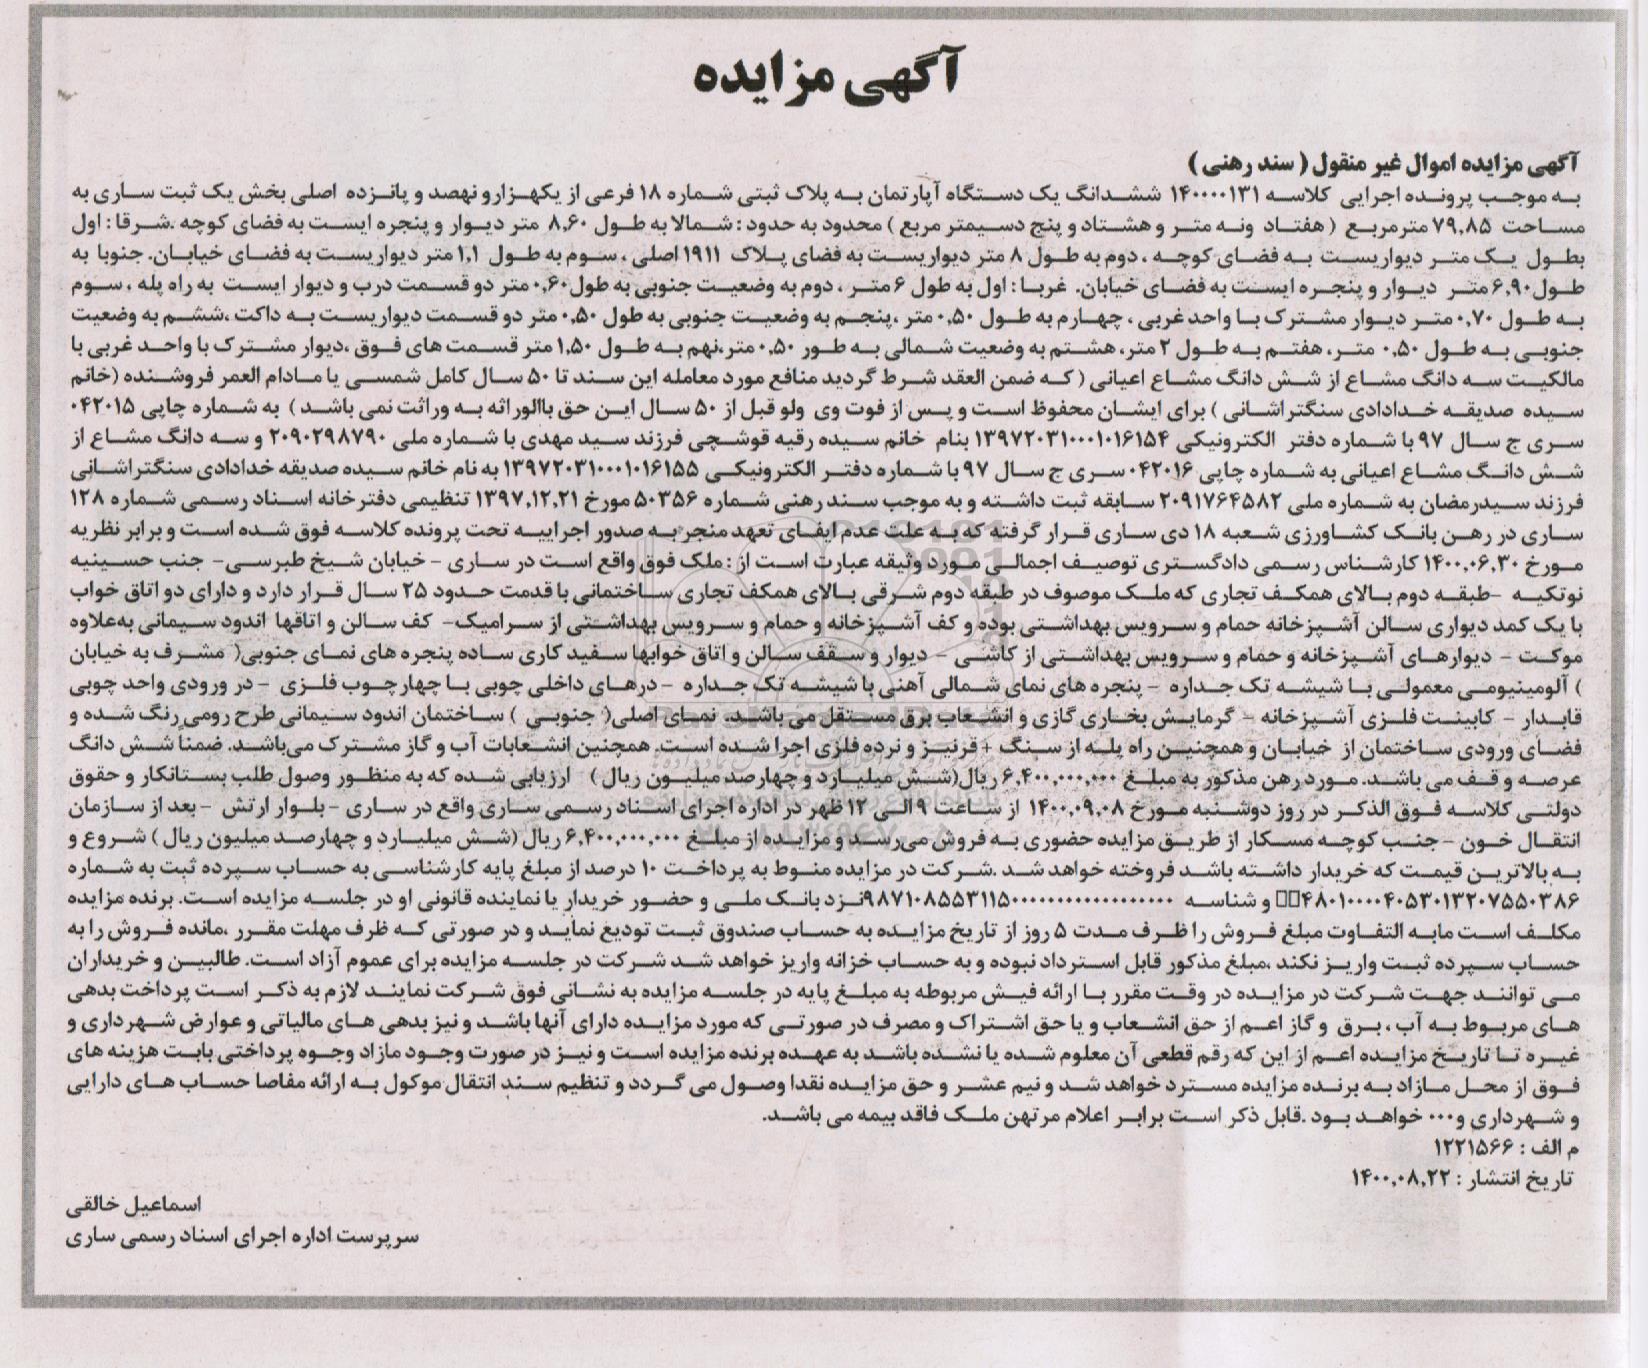 آگهی مزایده
آگهی مزایده اموال غیر منقول ( سند رهنی )
به موجب پرونده اجرایی کلاسه ۱۴۰۰۰۰۱۳۱ ششدانگ یک دستگاه آپارتمان به پلاک ثبتی شماره ۱۸ فرعی از یکهزارو نهصد و پانزده اصلی بخش یک ثبت ساری به
مساحت ۷۹,۸۵ مترمربع ( هفتاد ونه متر و هشتاد و پنج دسیمتر مربع ) محدود به حدود : شمالا به طول ۸,۶۰ متر دیوار و پنجره ایست به فضای کوچه .شرقا : اول
بطول یک متر دیواریست به فضای کوچه ، دوم به طول ۸ متر دیواریست به فضای پلاک ۱۹۱۱ اصلی ، سوم به طول ۱,۱ متر دیواریست به فضای خیابان. جنوبا به
طول۶,۹۰ متر دیوار و پنجره ایست به فضای خیابان. غربا : اول به طول ۶ متر ، دوم به وضعیت جنوبی به طول۰,۶۰ متر دو قسمت درب و دیوار ایست به راه پله ، سوم
به طول ۰,۷۰ متر دیوار مشترک با واحد غربی ، چهارم به طول ۰,۵۰ متر ،پنجم به وضعیت جنوبی به طول ۰,۵۰ متر دو قسمت دیواریست به داکت ،ششم به وضعیت
جنوبی به طول ۰,۵۰ متر، هفتم به طول ۲ متر، هشتم به وضعیت شمالی به طور ۰,۵۰ متر،نهم به طول ۱,۵۰ متر قسمت های فوق ،دیوار مشترک با واحد غربی با
مالکیت سه دانگ مشاع از شش دانگ مشاع اعیانی ( که ضمن العقد شرط گردید منافع مورد معامله این سند تا ۵۰ سال کامل شمسی یا مادام العمر فروشنده (خانم
سیده صدیقه خدادادی سنگتراشانی ) برای ایشان محفوظ است و پس از فوت وی ولو قبل از ۵۰ سال این حق باالوراثه به وراثت نمی باشد ) به شماره چاپی ۰۴۲۰۱۵
سری ج سال ۹۷ با شماره دفتر الکترونیکی ۱۳۹۷۲۰۳۱۰۰۰۱۰۱۶۱۵۴ بنام خانم سیده رقیه قوشچی فرزند سید مهدی با شماره ملی ۲۰۹۰۲۹۸۷۹۰ و سه دانگ مشاع از
شش دانگ مشاع اعیانی به شماره چاپی ۰۴۲۰۱۶ سری ج سال ۹۷ با شماره دفتر الکترونیکی ۱۳۹۷۲۰۳۱۰۰۰۱۰۱۶۱۵۵ به نام خانم سیده صدیقه خدادادی سنگتراشانی
فرزند سیدرمضان به شماره ملی ۲۰۹۱۷۶۴۵۸۲ سابقه ثبت داشته و به موجب سند رهنی شماره ۵۰۳۵۶ مورخ ۱۳۹۷,۱۲,۲۱ تنظیمی دفترخانه اسناد رسمی شماره ۱۲۸
ساری در رهن بانک کشاورزی شعبه ۱۸ دی ساری قرار گرفته که به علت عدم ایفای تعهد منجر به صدور اجراییه تحت پرونده کلاسه فوق شده است و برابر نظریه
مورخ ۱۴۰۰,۰۶,۳۰ کارشناس رسمی دادگستری توصیف اجمالی مورد وثیقه عبارت است از : ملک فوق واقع است در ساری - خیابان شیخ طبرسی- جنب حسینیه
نوتکیه -طبقه دوم بالای همکف تجاری که ملک موصوف در طبقه دوم شرقی بالای همکف تجاری ساختمانی با قدمت حدود ۲۵ سال قرار دارد و دارای دو اتاق خواب
با یک کمد دیواری سالن آشپزخانه حمام و سرویس بهداشتی بوده و کف آشپزخانه و حمام و سرویس بهداشتی از سرامیک- کف سالن و اتاقها اندود سیمانی به‌علاوه
موکت - دیوارهای آشپزخانه و حمام و سرویس بهداشتی از کاشی - دیوار و سقف سالن و اتاق خوابها سفید کاری ساده پنجره های نمای جنوبی( مشرف به خیابان
) آلومینیومی معمولی با شیشه تک جداره - پنجره های نمای شمالی آهنی با شیشه تک جداره -درهای داخلی چوبی با چهارچوب فلزی -در ورودی واحد چوبی
قابدار - کابینت فلزی آشپزخانه - گرمایش بخاری گازی و انشعاب برق مستقل می باشد. نمای اصلی( جنوبی ) ساختمان اندود سیمانی طرح رومی رنگ شده و
فضای ورودی ساختمان از خیابان و همچنین راه پله از سنگ +قرنیز و نرده فلزی اجرا شده است. همچنین انشعابات آب و گاز مشترک می‌باشد. ضمناً شش دانگ
عرصه وقف می باشد. مورد رهن مذکور به مبلغ ۶,۴۰۰,۰۰۰,۰۰۰ ریال(شش میلیارد و چهارصد میلیون ریال) ارزیابی شده که به منظور وصول طلب بستانکار و حقوق
دولتی کلاسه فوق الذکر در روز دوشنبه مورخ ۱۴۰۰,۰۹,۰۸ از ساعت ۹ الی ۱۲ ظهر در اداره اجرای اسناد رسمی ساری واقع در ساری -بلوار ارتش -بعد از سازمان
انتقال خون -جنب کوچه مسکار از طریق مزایده حضوری به فروش می‌رسد و مزایده از مبلغ ۶,۴۰۰,۰۰۰,۰۰۰ ریال (شش میلیارد و چهارصد میلیون ریال ) شروع و
به بالاترین قیمت که خریدار داشته باشد فروخته خواهد شد .شرکت در مزایده منوط به پرداخت ۱۰ درصد از مبلغ پایه کارشناسی به حساب سپرده ثبت به شماره
۴۸۰۱۰۰۰۰۴۰۵۳۰۱۳۲۰۷۵۵۰۳۸۶ و شناسه ۹۸۷۱۰۸۵۵۳۱۱۵۰۰۰۰۰۰۰۰۰۰۰۰۰۰۰۰۰۰ نزد بانک ملی و حضور خریدار یا نماینده قانونی او در جلسه مزایده است. برنده مزایده
مکلف است مابه التفاوت مبلغ فروش را ظرف مدت ۵ روز از تاریخ مزایده به حساب صندوق ثبت تودیع نماید و در صورتی که ظرف مهلت مقرر ،مانده فروش را به
حساب سپرده ثبت واریز نکند ،مبلغ مذکور قابل استرداد نبوده و به حساب خزانه واریز خواهد شد شرکت در جلسه مزایده برای عموم آزاد است. طالبین و خریداران
می توانند جهت شرکت در مزایده در وقت مقرر با ارائه فیش مربوطه به مبلغ پایه در جلسه مزایده به نشانی فوق شرکت نمایند لازم به ذکر است پرداخت بدهی
های مربوط به آب ، برق و گاز اعم از حق انشعاب و یا حق اشتراک و مصرف در صورتی که مورد مزایده دارای آنها باشد و نیز بدهی های مالیاتی و عوارض شهرداری و
غیره تا تاریخ مزایده اعم از این که رقم قطعی آن معلوم شده یا نشده باشد به عهده برنده مزایده است و نیز در صورت وجود مازاد وجوه پرداختی بابت هزینه های
فوق از محل مازاد به برنده مزایده مسترد خواهد شد و نیم عشر و حق مزایده نقدا وصول می گردد و تنظیم سند انتقال موکول به ارائه مفاصا حساب های دارایی
و شهرداری و۰۰۰ خواهد بود .قابل ذکر است برابر اعلام مرتهن ملک فاقد بیمه می باشد.
م الف : ۱۲۲۱۵۶۶
تاریخ انتشار : ۱۴۰۰,۰۸,۲۲
اسماعیل خالقی
سرپرست اداره اجرای اسناد رسمی ساری